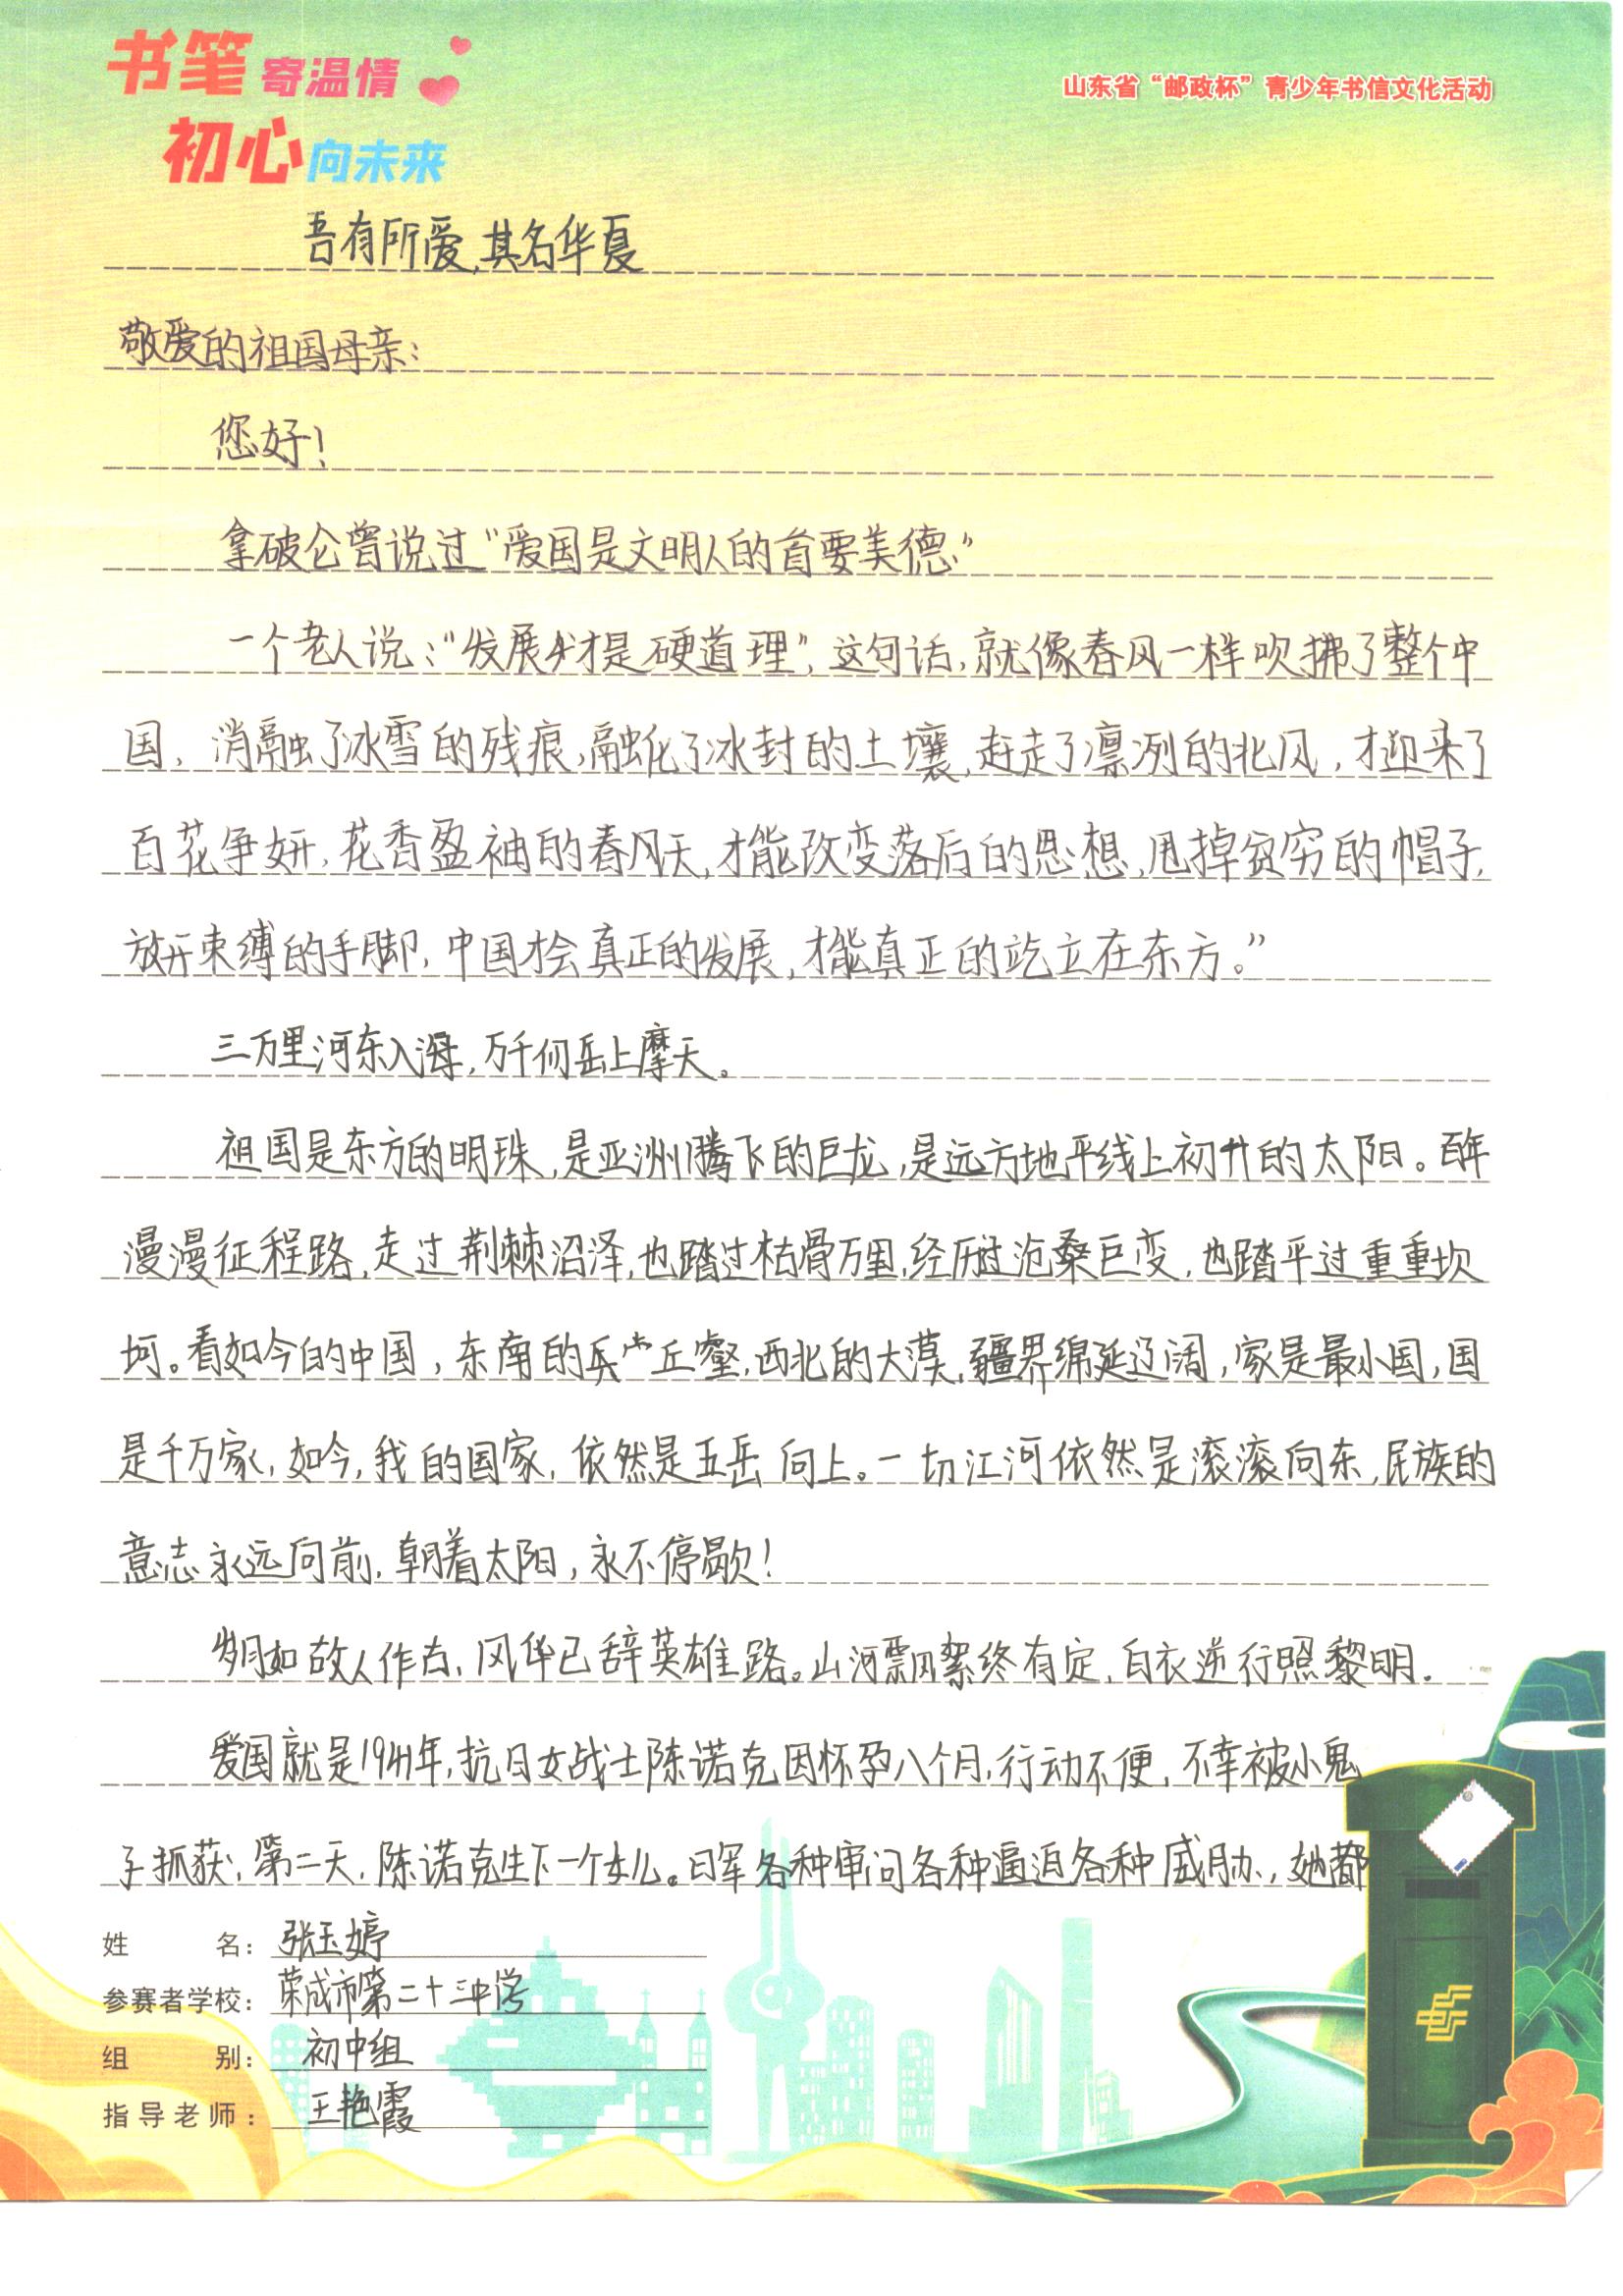 书笔寄温情
初心向未来
山东省“邮政杯”青少年书信文化活动
吾有所爱,其名华夏
敬爱的祖国母亲:
您好!
拿破仑曾说过“爱国是文明人的首要美德.”
一个老人说:“发展才是硬道理”,这句话,就像春风一样吹拂了整个中
国,消融了冰雪的残痕,融化了冰封的土壤,赶走了凛冽的北风,才迎来了
百花争妍,花香盈袖的春风天,才能改变落后的思想,甩掉贫穷的帽子,
放开束缚的手脚,中国才会真正的发展,才能真正的屹立在东方。”
三万里河东入海,万千仞岳上摩天。
祖国是东方的明珠,是亚洲腾飞的巨龙,是远方地平线上初升的太阳。百年
漫漫征程路,走过荆棘沼泽,也踏过枯骨万里,经历过沧桑巨变,也踏平过重重坎
坷。看如今的中国,东南的丘壑,西北的大漠,疆界绵延辽阔,家是最小国,国
是千万家,如今,我的国家,依然是五岳向上。一切江河依然是滚滚向东,民族的
意志永远向前,朝着太阳,永不停歇!
岁月如故人作古,风华已辞英雄路。山河飘絮终有定,白衣逆行照黎明.
爱国就是1941年,抗日女战士陈诺克因怀孕八个月,行动不便,不幸被小鬼
子抓获,第二天,陈诺克生下一个女儿。日军各种审问各种逼迫各种威胁,她都
姓名: 张玉婷
参赛者学校: 荣成市第二十三中学
组别: 初中组
指导老师: 王艳霞